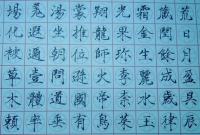 荒日月盈昃辰
藏閏餘成歲律
霜金生麗水玉
光果珍李柰菜
翔龍師火帝鳥
裳推位讓國有
湯坐朝問道垂
羌遐邇壹體率
場化被草木賴